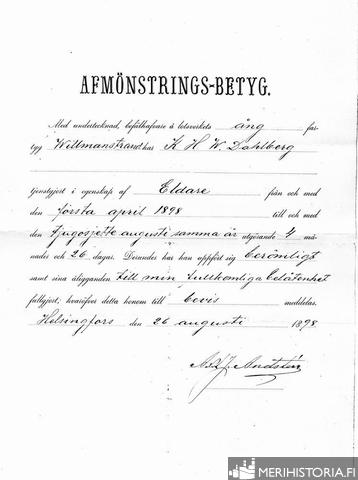 AFMÖNSTRINGS-BETYG.
Med undertecknad, befälhafvare å lotsverkets ång far-
tyg Willmanstrand har K H W. Dahlberg
tjenstgjort i egenskap af Eldare från och med
den första april 1898 till och med
den tjugosjette augusti samma år utgörande 4 må-
nader och 26 dagar. Derunder har han uppfört sig berömligt
samt sina åligganden till min fullkomliga belåtenhet
fullgjort; hvarföre detta honom till bevis meddelas.
Helsingfors den 26 augusti 1898
MERIHISTORIA.FI